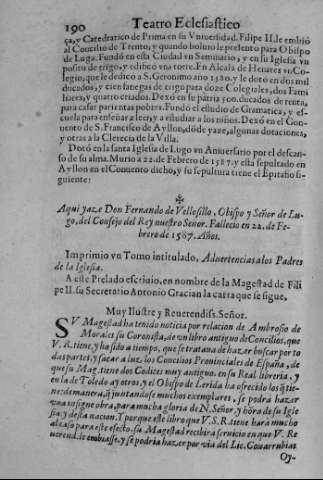 190 Teatro Eclesiastico
ça, y Catedratico de Prima en su Vniuersidad. Filipe II. le embiò
al Concilio de Trento, y quando boluio le presento para Obispo
de Lugo. Fundò en esta Ciudad vn Seminario, y en su Iglesia vn
posito de trigo, y edificò vna torre. En Alcala de Henares vn Co-
legio, que le dedicò a S. Geronimo año 1580. y le dotò en dos mil
ducados, y cien fanegas de trigo para doze Colegiales, dos Fami
liares, y quatro criados. Dexò en su patria 500. ducados de renta,
para casar parientas pobres. Fundò el estudio de Gramatica, y es-
cuela para enseñar a leer, y a estudiar a los niños. Dexò en el Con-
uento de S. Francisco de Ayllon, dõde yaze, algunas dotaciones,
y otras a la Clerecia de la Villa.
Dotò en la santa Iglesia de Lugo vn Aniuersario por el descan-
so de su alma. Murio a 22. de Febrero de 1587. y està sepultado en
Ayllon en el Conuento dicho, y su sepultura tiene el Epitafio si-
guiente:
✠
Aqui yaze Don Fernando de Vellosillo, Obispo y Señor de Lu-
go, del Consejo del Rey nuestro Señor. Fallecio en 22. de Fe-
brero de 1587. Años.
Imprimio vn Tomo intitulado, Aduertencias a los Padres
de la Iglesia.
A este Prelado escriuio, en nombre de la Magestad de Fili
pe II. su Secretario Antonio Gracian la carta que se sigue,
Muy Ilustre y Reuerendiss. Señor.
SV Magestad ha tenido noticia por relacion de Ambrosio de
Morales su Coronista, de vn libro antiguo de Concilios, que
V. R. tiene, y ha sido a tiempo, que se trataua de hazer buscar por to
das partes, y sacar a luz los Concilios Prouinciales de España, de
que su Mag. tiene dos Codices muy antiguo. en su Real libreria, y
en la de Toledo ay otros, y el Obispo de Lerida ha ofrecido los q̃ tie-
ne: de manera, q̃ juntandose muchos exemplares, se podrà hazer
vna insigne obra, para mucha gloria de N. Señor, y hõra de su Igle
sia, y desta nacion. Y porque este libro que V. S. R. tiene harà mucho
al caso para este efecto. su Magestad recibirà seruicio en que V. Re
uerend. le embiasse, y se podria hazer por via del Lic. Couarrubias
Oy-